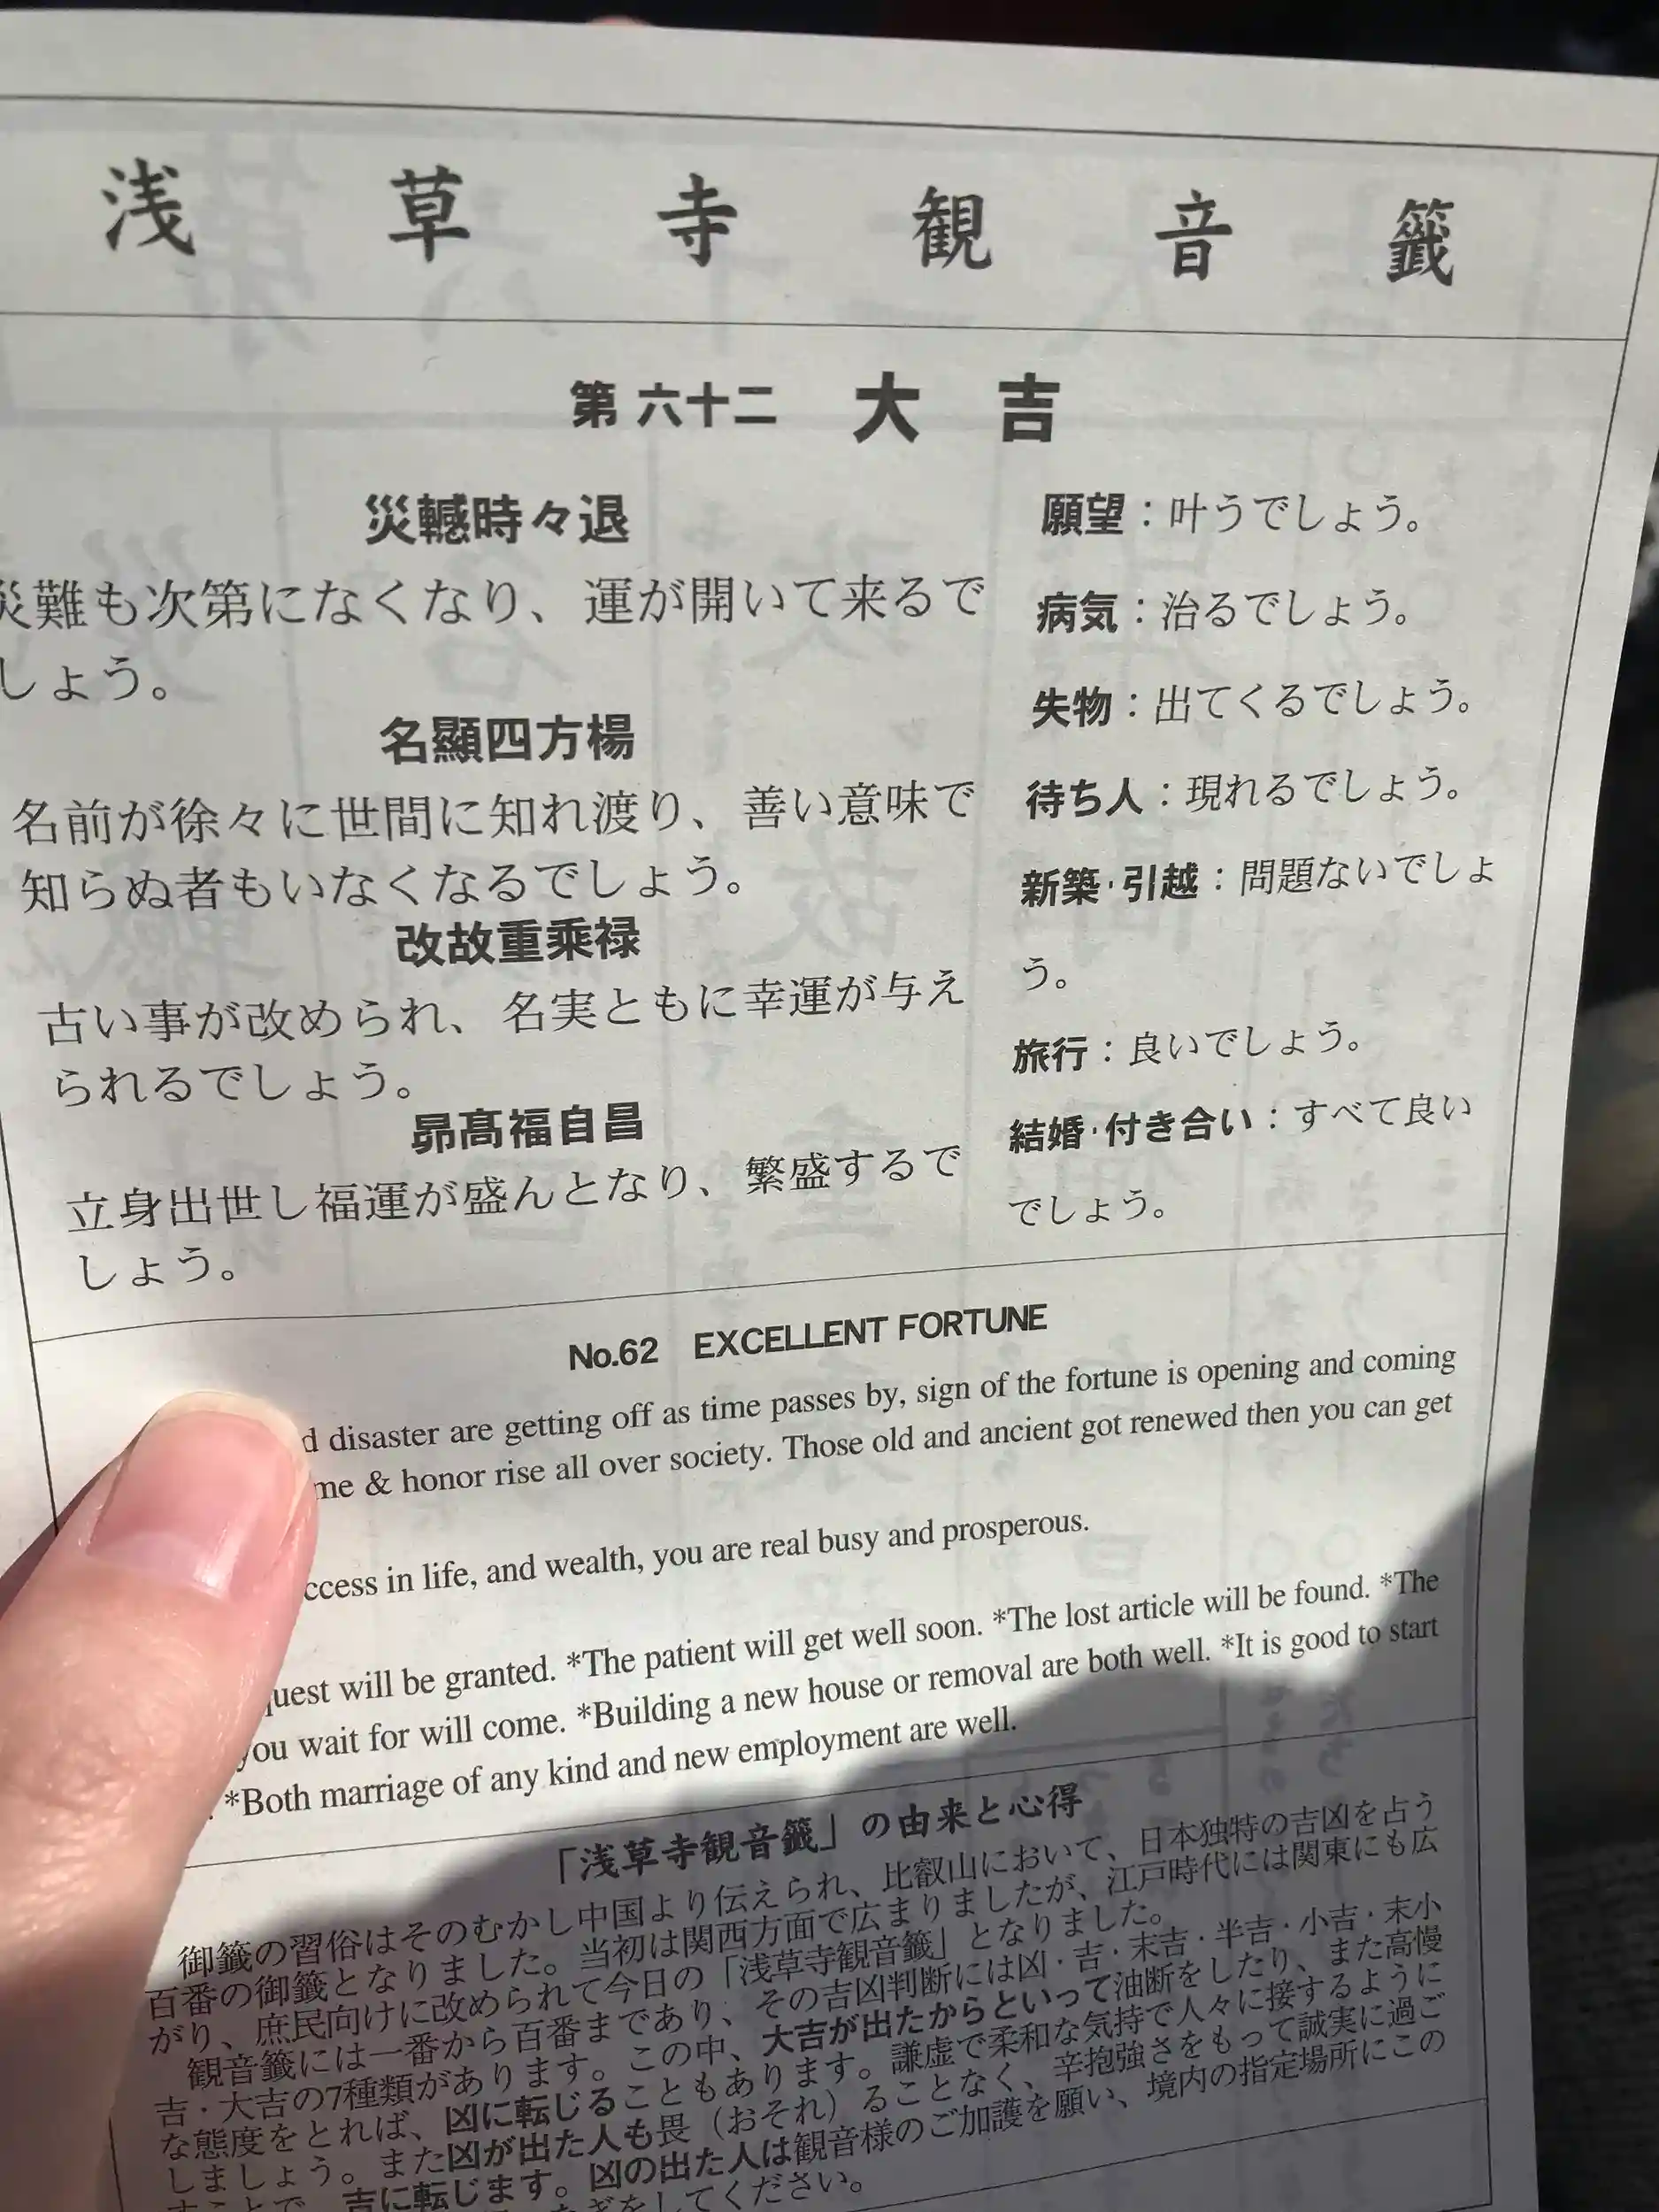 浅草寺観音籤
第六十二 大吉
災轗時々退
災難も次第になくなり、運が開いて来るで
しょう。
名顯四方楊
名前が徐々に世間に知れ渡り、善い意味で
知らぬ者もいなくなるでしょう。
改故重乗禄
古い事が改められ、名実ともに幸運が与え
られるでしょう。
昴髙福自昌
立身出世し福運が盛んとなり、繁盛するで
しょう。
願望：叶うでしょう。
病気：治るでしょう。
失物：出てくるでしょう。
待ち人：現れるでしょう。
新築·引越：問題ないでしょ
う。
旅行：良いでしょう。
結婚·付き合い：すべて良い
でしょう。
No.62 EXCELLENT FORTUNE
disaster are getting off as time passes by, sign of the fortune is opening and coming
& honor rise all over society. Those old and ancient got renewed then you can get
in life, and wealth, you are real busy and prosperous.
will be granted. *The patient will get well soon. *The lost article will be found. *The
you wait for will come. *Building a new house or removal are both well. *It is good to start
. *Both marriage of any kind and new employment are well.
「浅草寺観音籤」の由来と心得
御籤の習俗はそのむかし中国より伝えられ、比叡山において、日本独特の吉凶を占う
百番の御籤となりました。当初は関西方面で広まりましたが、江戸時代には関東にも広
がり、庶民向けに改められて今日の「浅草寺観音籤」となりました。
観音籤には一番から百番まであり、その吉凶判断には凶·吉·末吉·半吉·小吉·末小
吉·大吉の7種類があります。この中、大吉が出たからといって油断をしたり、また高慢
な態度をとれば、凶に転じることもあります。謙虚で柔和な気持で人々に接するように
しましょう。また凶が出た人も畏（おそれ）ることなく、辛抱強さをもって誠実に過ご
すことで、吉に転じます。凶の出た人は観音様のご加護を願い、境内の指定場所にこの
をしてください。